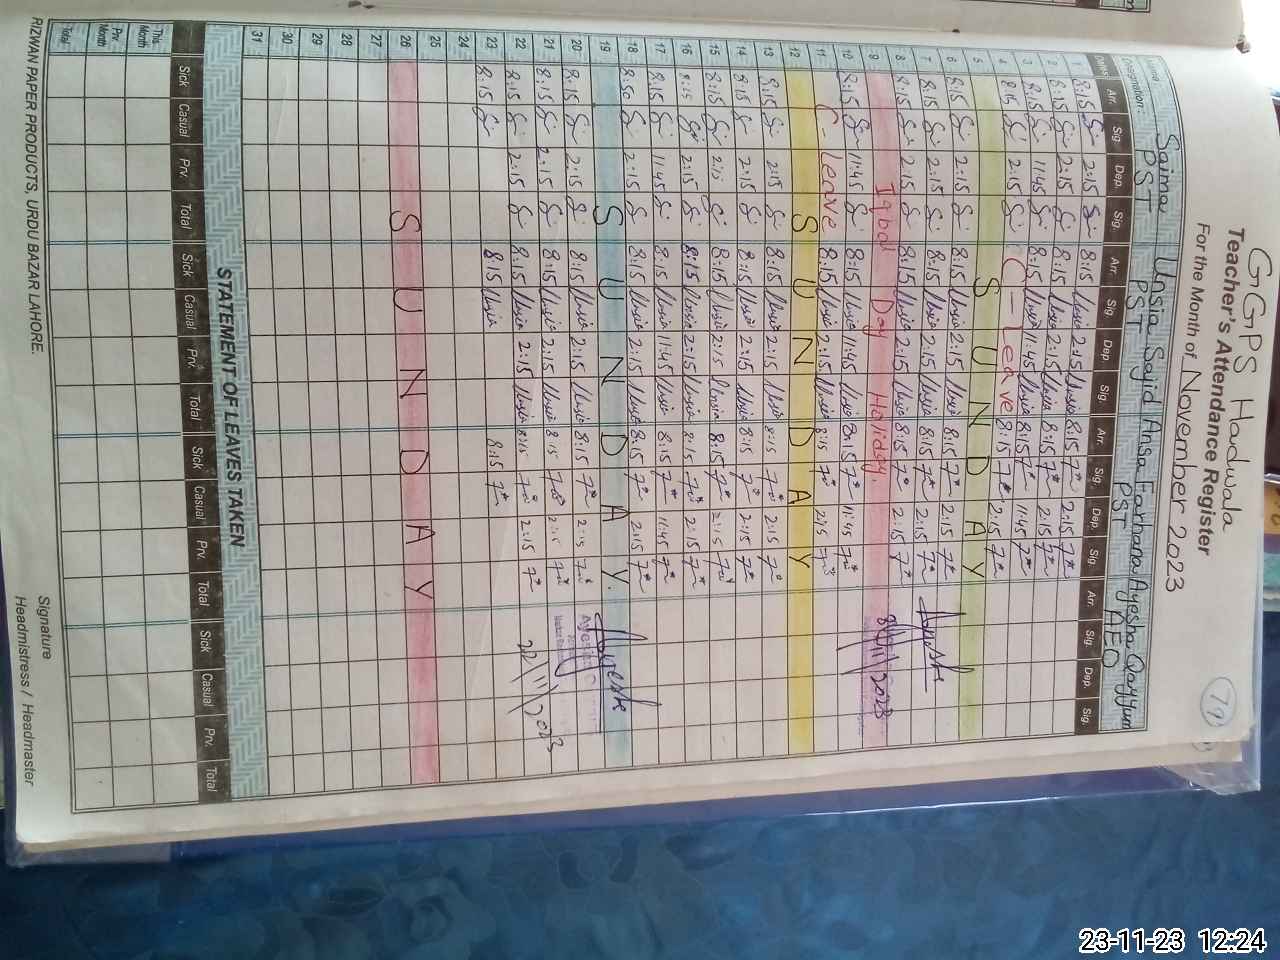 GGPS Hardwala
Teacher's Attendance Register
For the Month of November 2023
79
Name Saima Unsia Sajid Ansa Farhana Ayesha Qayyum
Designation: PST PST PST AEO
Date Arr. Sig. Dep. Sig. Arr. Sig. Dep. Sig. Arr. Sig. Dep. Sig. Arr. Sig. Dep. Sig.
1 8:15 2:15 8:15 Unsia 2:15 Unsia 8:15 2:15
2 8:15 2:15 8:15 Unsia 2:15 Unsia 8:15 2:15
3 8:15 11:45 8:15 Unsia 11:45 Unsia 8:15 11:45
4 8:15 2:15 C-Leave 8:15 2:15
5 SUNDAY
6 8:15 2:15 8:15 Unsia 2:15 Unsia 8:15 2:15
7 8:15 2:15 8:15 Unsia 2:15 Unsia 8:15 2:15
8 8:15 2:15 8:15 Unsia 2:15 Unsia 8:15 2:15 8/11/2023
9 Iqbal Day Holiday.
10 8:15 11:45 8:15 Unsia 11:45 Unsia 8:15 11:45
11 C-Leave 8:15 Unsia 2:15 Unsia 8:15 2:15
12 SUNDAY
13 8:15 2:15 8:15 Unsia 2:15 Unsia 8:15 2:15
14 8:15 2:15 8:15 Unsia 2:15 Unsia 8:15 2:15
15 8:15 2:15 8:15 Unsia 2:15 Unsia 8:15 2:15
16 8:15 2:15 8:15 Unsia 2:15 Unsia 8:15 2:15
17 8:15 11:45 8:15 Unsia 11:45 Unsia 8:15 11:45
18 2:15 8:15 Unsia 2:15 Unsia 8:15 2:15
19 SUNDAY.
20 8:15 2:15 8:15 Unsia 2:15 Unsia 8:15 2:15
21 8:15 2:15 8:15 Unsia 2:15 Unsia 8:15 2:15
22 8:15 2:15 8:15 Unsia 2:15 Unsia 8:15 2:15 22/11/2023
23 8:15 8:15 Unsia 8:15
24
25
26 SUNDAY
27
28
29
30
31
STATEMENT OF LEAVES TAKEN
Sick Casual Prv. Total Sick Casual Prv. Total Sick Casual Prv. Total Sick Casual Prv. Total
This Month
Prv. Month
Total
Signature
Headmistress / Headmaster
RIZWAN PAPER PRODUCTS, URDU BAZAR LAHORE.
23-11-23 12:24